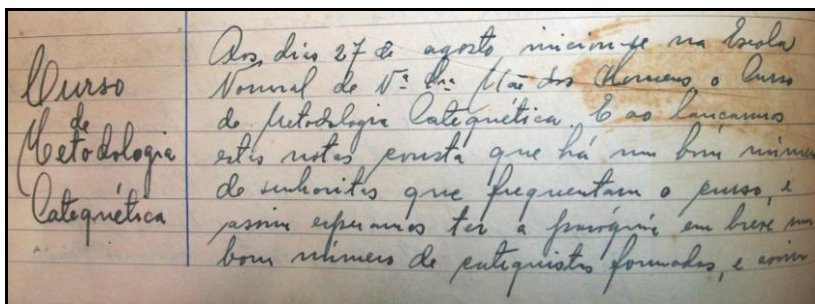 Curso
de
Metodologia
Catequética
Aos, dias 27 de agosto iniciou-se na Escola
Normal de Nª Srª Mãe dos Homens o Curso
de Metodologia Catequética. E ao lancarmos
estas notas consta que há um bom número
de senhoritas que frequentam o curso, e
assim esperamos ter a paróquia em breve um
bom número de catequistas formadas, e assim